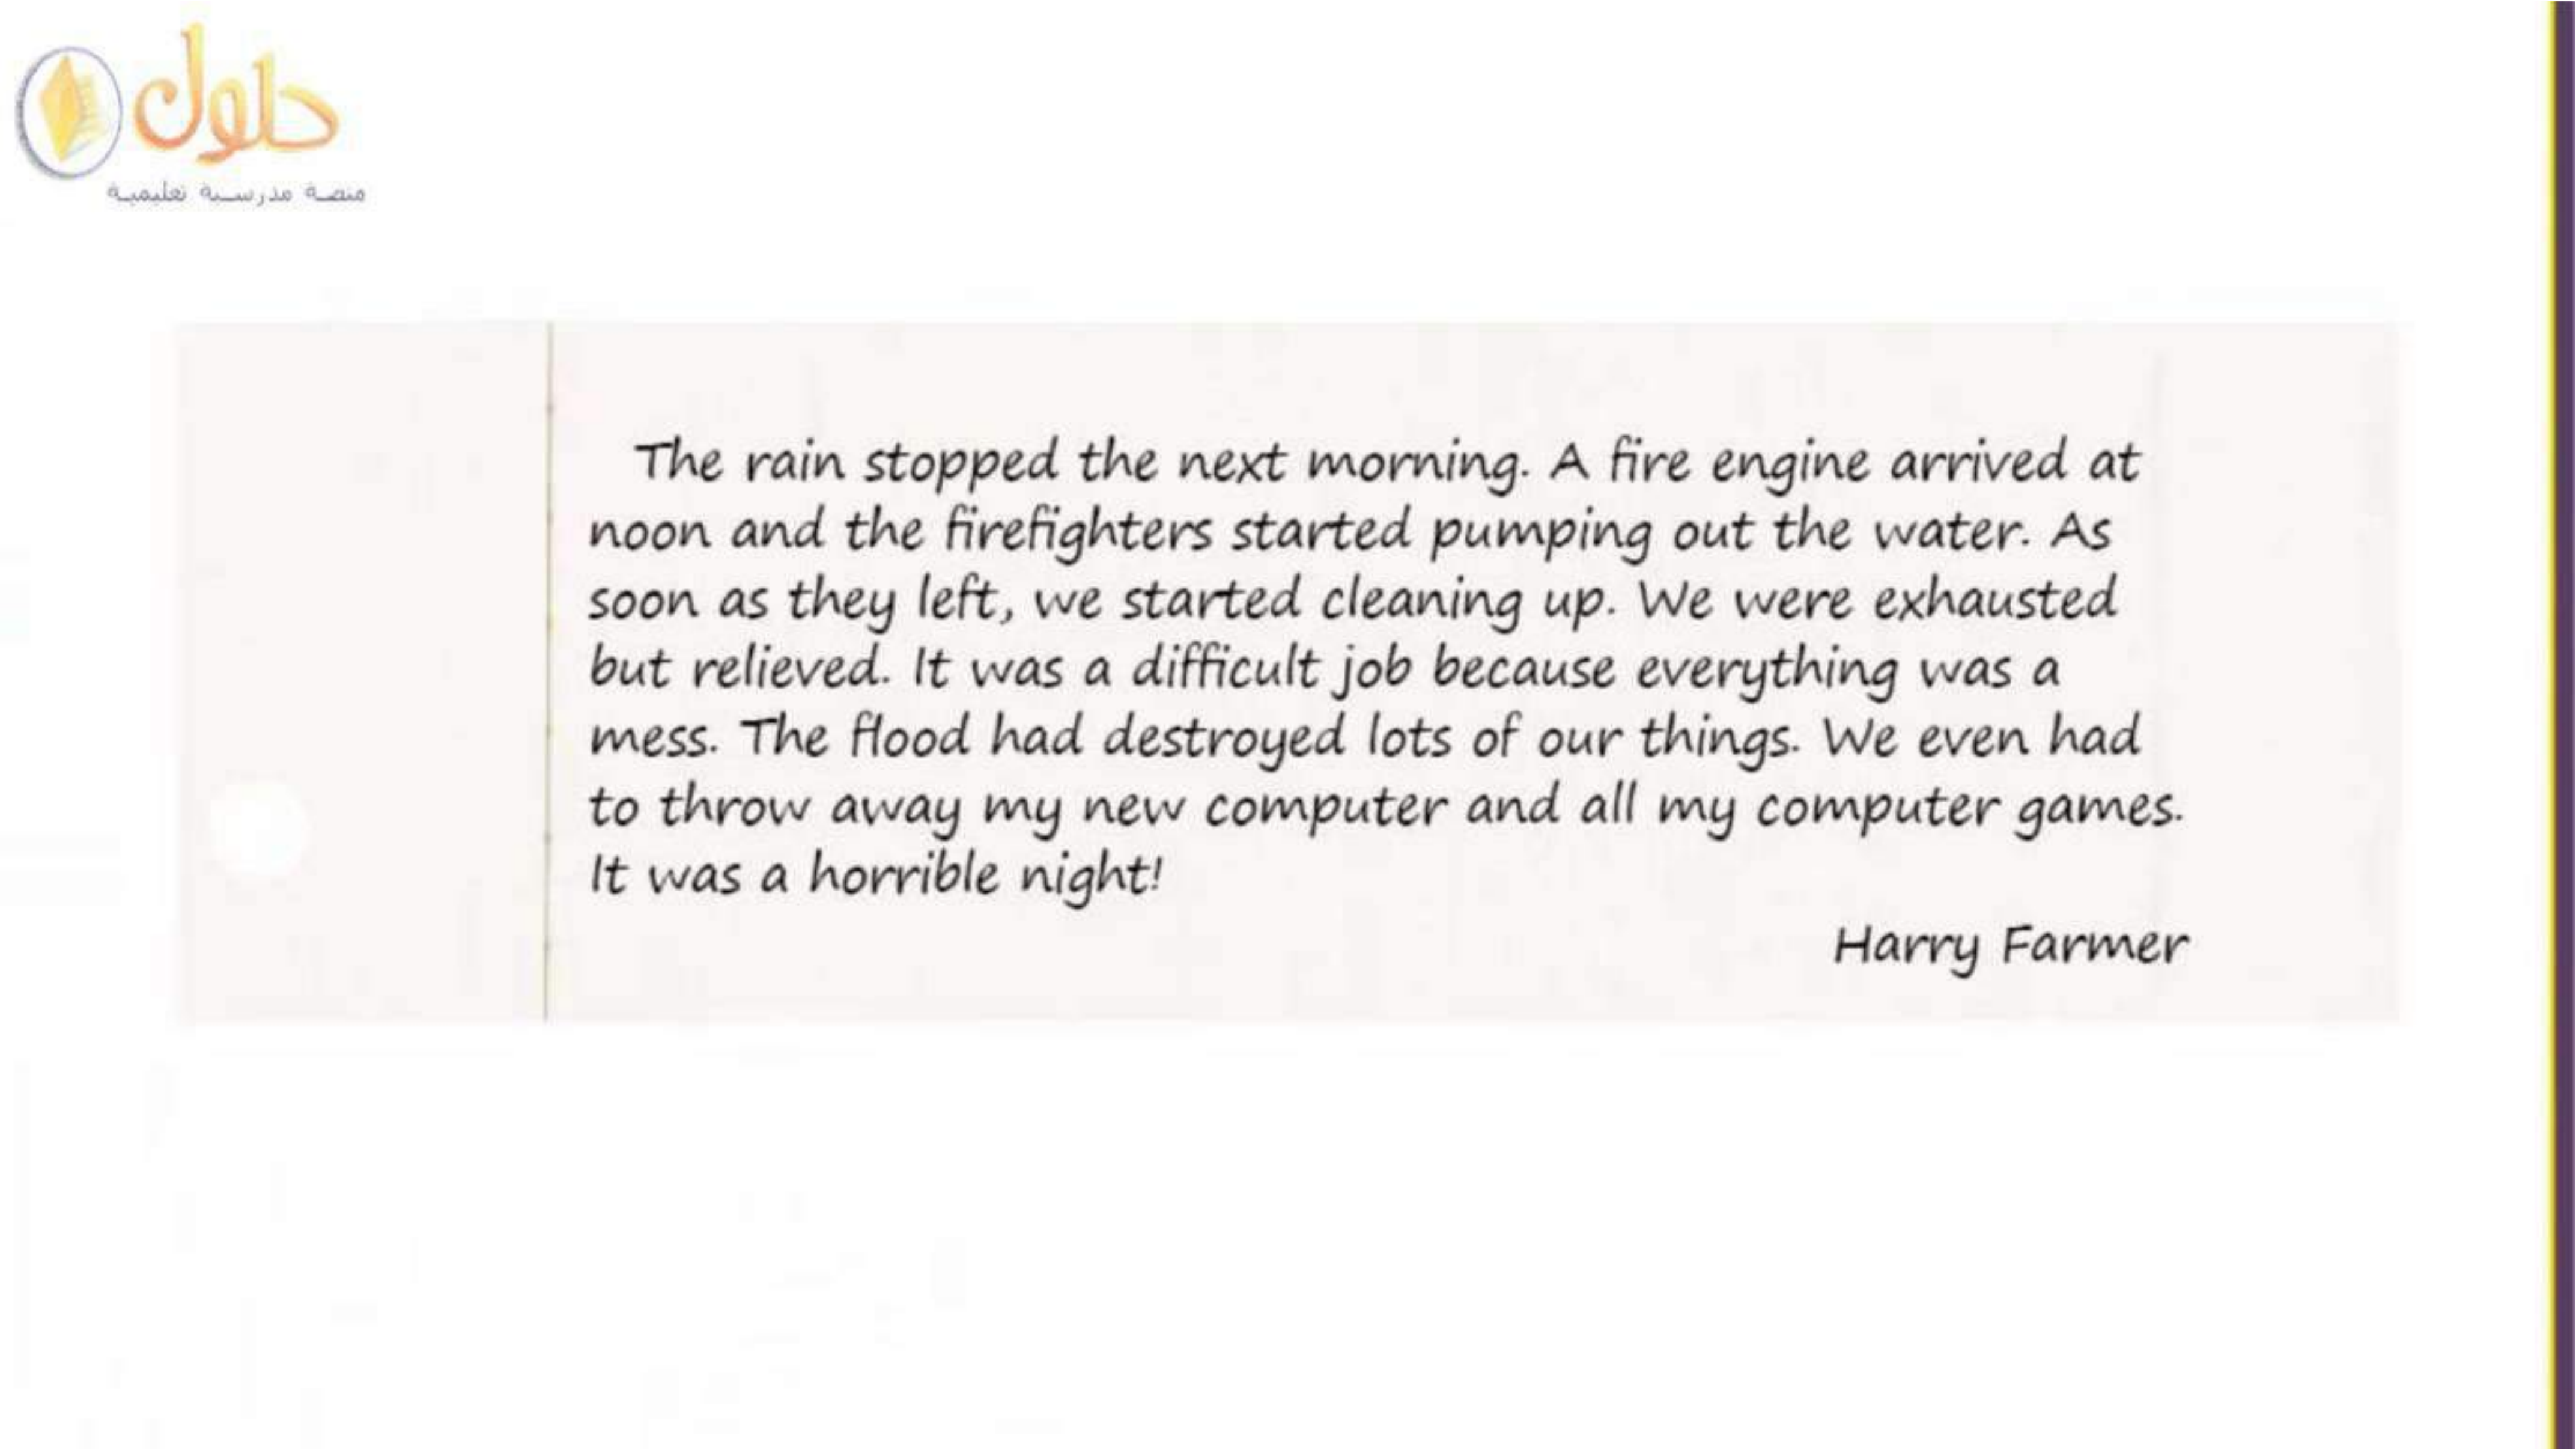 حلول
منصة مدرسية تعليمية
The rain stopped the next morning. A fire engine arrived at
noon and the firefighters started pumping out the water. As
soon as they left, we started cleaning up. We were exhausted
but relieved. It was a difficult job because everything was a
mess. The flood had destroyed lots of our things. We even had
to throw away my new computer and all my computer games.
It was a horrible night!
Harry Farmer